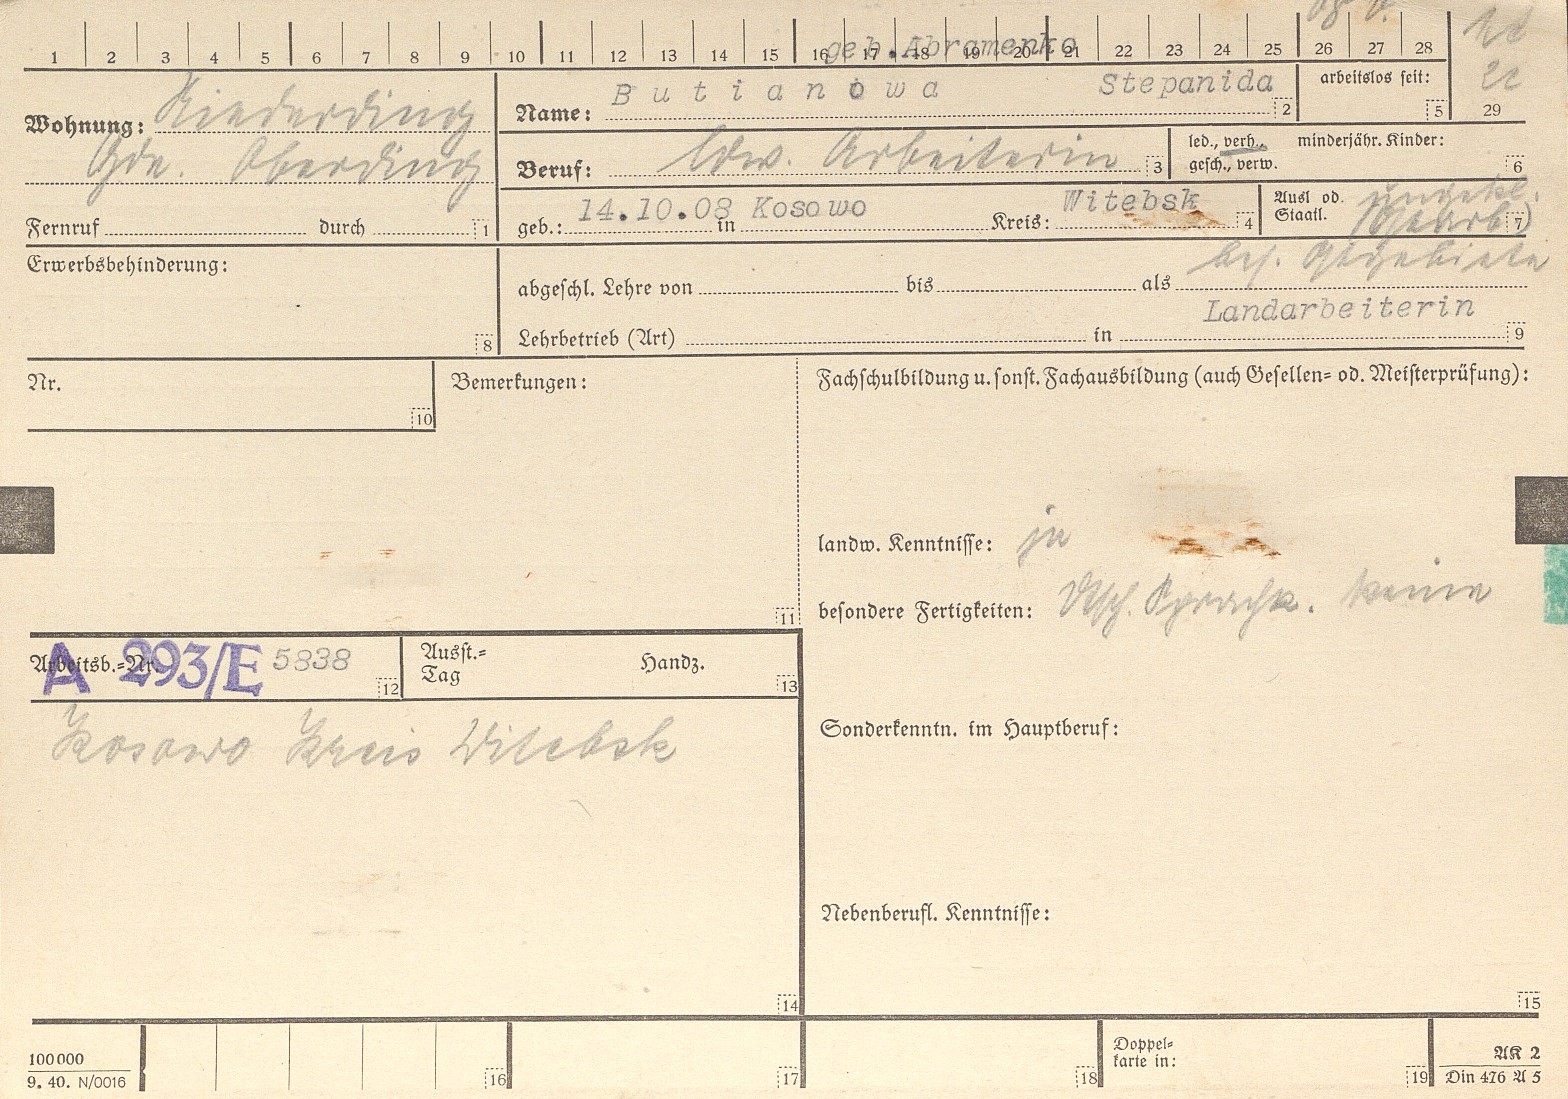 1 2 3 4 5 6 7 8 9 10 11 12 13 14 15 16 17 18 19 20 21 22 23 24 25 26 27 28
geb. Abramenko
Wohnung: Niederding
Gde. Oberding
Fernruf durch 1
Name: Butianowa Stepanida 2
arbeitslos seit: 5
29
Beruf: ldw. Arbeiterin 3
led., verh., minderjähr. Kinder:
gesch., verw. 6
geb.: 14.10.08 in Kosowo Kreis: Witebsk 4
Ausl od. ungekl.
Staatl. 7
bes. Ostgebiete
Erwerbsbehinderung:
8
abgeschl. Lehre von bis als
Landarbeiterin
Lehrbetrieb (Art) in 9
Nr.
10
Bemerkungen:
11
Fachschulbildung u. sonst. Fachausbildung (auch Gesellen- od. Meisterprüfung):
landw. Kenntnisse: ja
besondere Fertigkeiten: Dtsch. Sprachk. keine
Arbeitsb.-Nr. A 293/E 5838 12
Ausst.-
Tag Handz. 13
Kosowo Kreis Witebsk
14
Sonderkenntn. im Hauptberuf:
Nebenberufl. Kenntnisse:
15
100000
9. 40. N/0016
16 17 18
Doppel-
karte in: 19
AK 2
Din 476 A 5